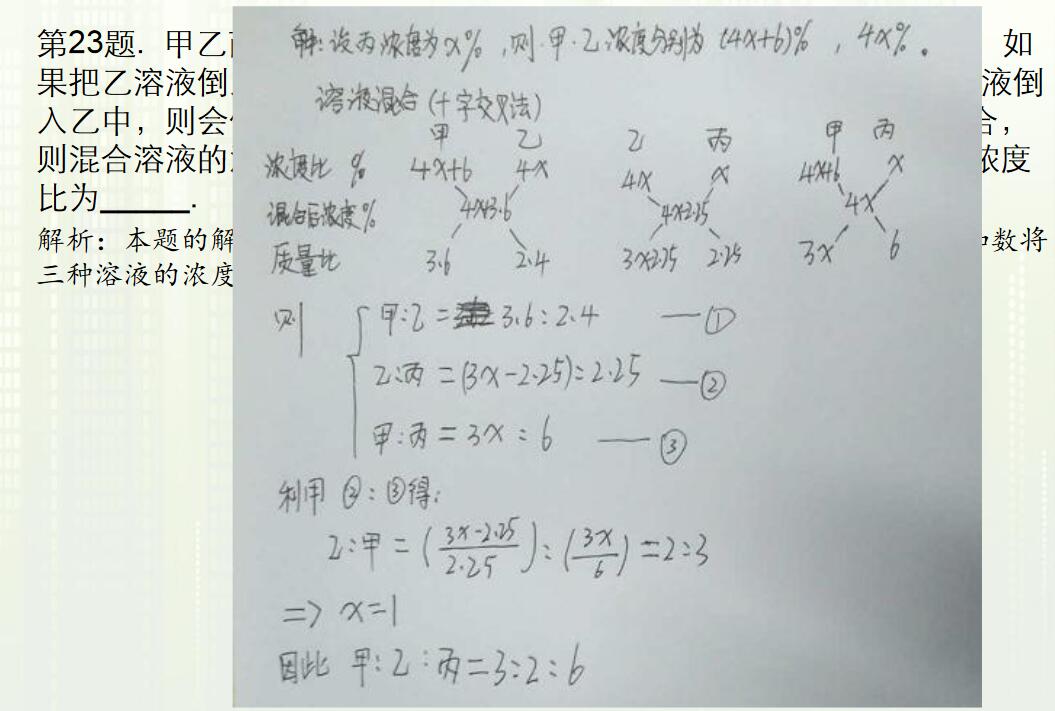 第23题. 甲乙 如
果把乙溶液倒 液倒
入乙中，则会 合，
则混合溶液的 浓度
比为______.
解析：本题的解 数将
三种溶液的浓度
解:设丙浓度为x%,则甲.乙浓度分别为(4x+6)%,4x%。
溶液混合(十字交叉法)
甲 乙 乙 丙 甲 丙
浓度比 % 4x+6 4x 4x x 4x+6 x
混合后浓度% 4x+3.6 4x-2.25 4x
质量比 3.6 2.4 3x-2.25 2.25 3x 6
则 甲:乙 = 3.6:2.4 —①
乙:丙 = (3x-2.25):2.25 —②
甲:丙 = 3x:6 —③
利用 ②:③得:
乙:甲 = (3x-2.25/2.25):(3x/6) = 2:3
=> x=1
因此 甲:乙:丙=3:2:6